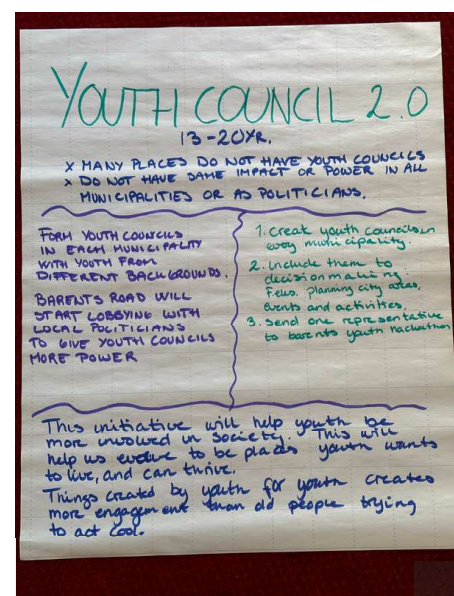 YOUTH COUNCIL 2.0
13-20YR.
X MANY PLACES DO NOT HAVE YOUTH COUNCILS
X DO NOT HAVE SAME IMPACT OR POWER IN ALL
MUNICIPALITIES OR AS POLITICIANS.
FORM YOUTH COUNCILS
IN EACH MUNICIPALITY
WITH YOUTH FROM
DIFFERENT BACKGROUNDS.
BARENTS ROAD WILL
START LOBBYING WITH
LOCAL POLITICIANS
TO GIVE YOUTH COUNCILS
MORE POWER
1. Create youth councils in
every municipality.
2. Include them to
decision making
F.eks. planning city areas,
events and activities.
3. Send one representative
to barents youth hackathon
This initiative will help youth be
more involved in society. This will
help us evolve to be places youth wants
to live, and can thrive.
Things created by youth for youth creates
more engagement than old people trying
to act cool.